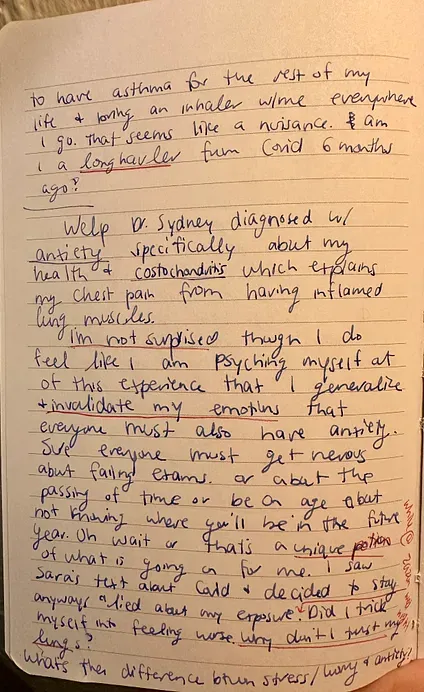 to have asthma for the rest of my
life & loving an inhaler w/me everywhere
I go. That seems like a nuisance. Am
I a longhauler from Covid 6 months
ago?
Welp Dr. Sydney diagnosed w/
anxiety specifically about my
health & costochondritis which explains
my chest pain from having inflamed
lung muscles.
I'm not surprised though I do
feel like I am psyching myself at
of this experience that I generalize
& invalidate my emotions that
everyone must also have anxiety.
Sure everyone must get nervous
about failing exams. or about the
passing of time or be on age about
not knowing where you'll be in the future
year. Oh wait or that's a unique potion
of what is going on for me. I saw
Sara's text about Covid & decided to stay
anyways & lied about my exposure. Did I trick
myself into feeling worse. Why don't I trust my
lungs?
What's the difference btwn stress/ & anxiety?